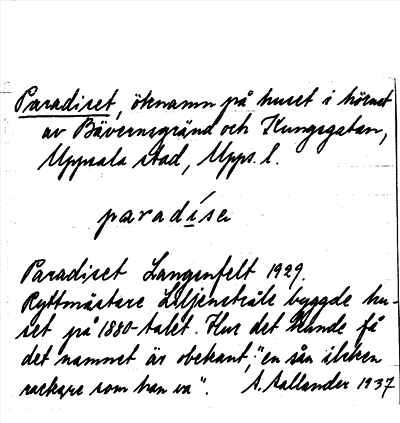 Paradiset, öknamn på huset i hörnet
av Bävernsgränd och Kungsgatan,
Uppsala stad, Upps. l.
paradíse
Paradiset Langenfelt 1929.
Ryttmästare Liljenstråle byggde hu-
set på 1880-talet. Hur det kunde få
det namnet är obekant, "en sån ilsken
rackare som han va". A. Sallander 1937